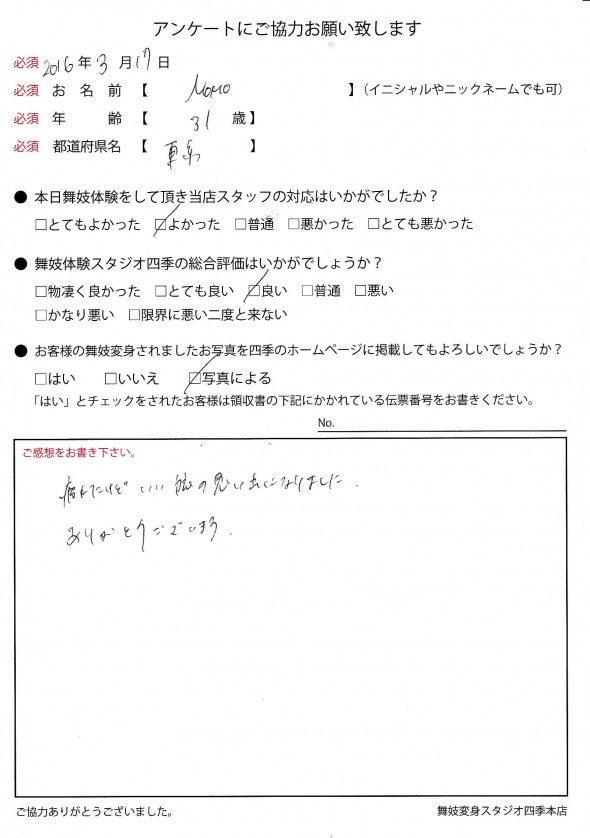 アンケートにご協力お願い致します
必須 2016年3月17日
必須 お名前【 Momo 】(イニシャルやニックネームでも可)
必須 年齢【 31 歳】
必須 都道府県名【 東京 】
● 本日舞妓体験をして頂き当店スタッフの対応はいかがでしたか?
□とてもよかった □よかった □普通 □悪かった □とても悪かった
● 舞妓体験スタジオ四季の総合評価はいかがでしょうか?
□物凄く良かった □とても良い □良い □普通 □悪い
□かなり悪い □限界に悪い二度と来ない
● お客様の舞妓変身されましたお写真を四季のホームページに掲載してもよろしいでしょうか?
□はい □いいえ □写真による
「はい」とチェックをされたお客様は領収書の下記にかかれている伝票番号をお書きください。
No.
ご感想をお書き下さい。
疲れたけど いい 旅の思い出になりました.
ありがとうございます.
ご協力ありがとうございました。
舞妓変身スタジオ四季本店